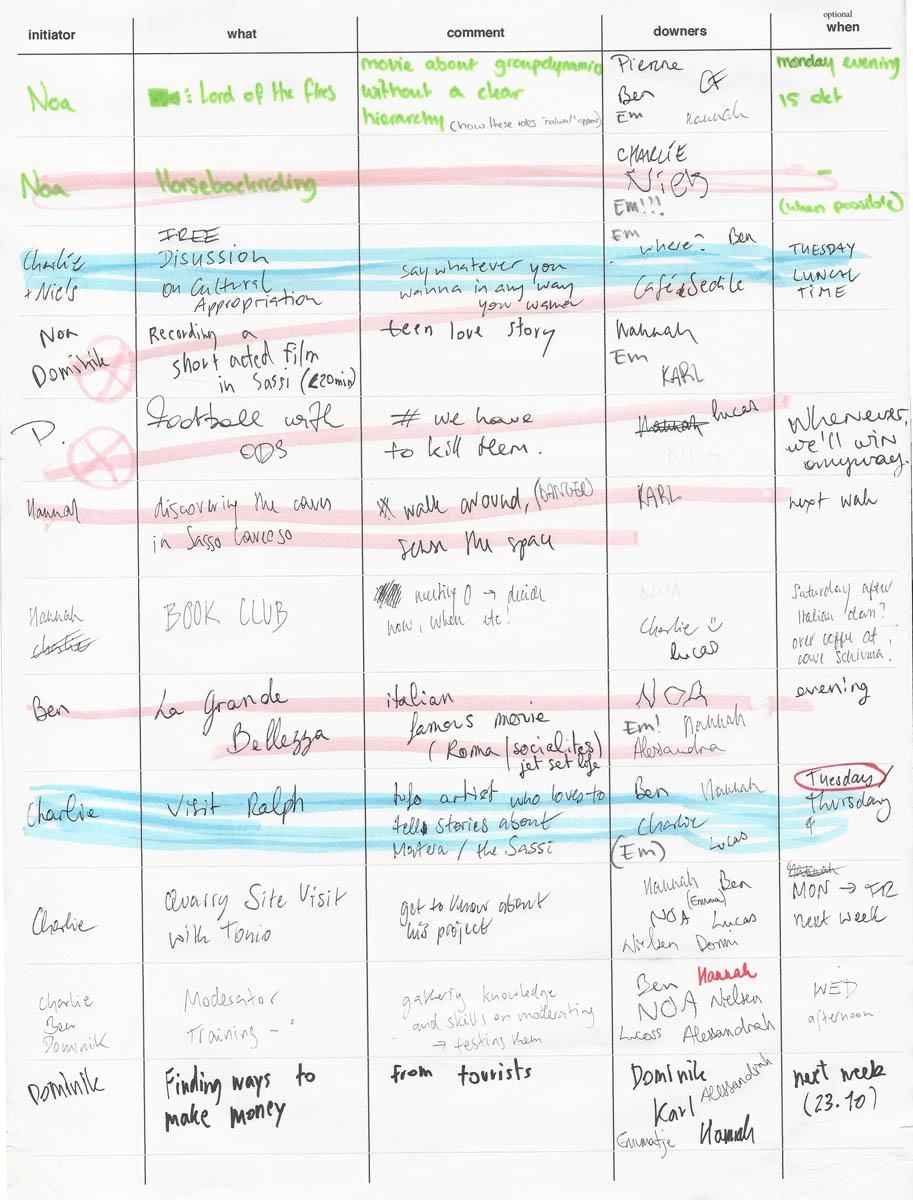 initiator what comment downers optional when
Noa
: Lord of the flies
movie about groupdynamic
without a clear
hierarchy (how these roles 'natural' appear)
Pierre
Ben
Em Hannah
monday evening
15 okt
Noa
Horsebackriding
CHARLIE
Niels
Em!!!
-
(when possible)
Charlie
+ Niels
FREE
Disussion
on Cultural
Appropriation
say whatever you
wanna in any way
you wanna
Em where? Ben
Café Sedile
TUESDAY
LUNCH
TIME
Noa
Dominik
Recording a
short acted film
in Sassi (±20min)
teen love story
Hannah
Em
KARL
D.
Football with
ODS
# we have
to kill them.
Hannah Lucas
NOA
Whenever,
we'll win
anyway.
Hannah
discovering the caves
in Sasso Caveoso
walk around, (DANGER)
sense the space
KARL
next week
Hannah
Charlie
BOOK CLUB
meeting 0 → decide
how, when etc!
NOA
Charlie
Lucas
Saturday after
Italian class?
over coffee at
cave schiuma.
Ben
La Grande
Bellezza
italian
famous movie
(Roma/socialites)
jet set life
NOA
Em! Hannah
Alessandra
evening
Charlie
Visit Ralph
tufo artist who loves to
tell stories about
Matera / the Sassi
Ben Hannah
Charlie
(Em) Lucas
Tuesday/
Thursday
Charlie
Quarry Site Visit
with Tonio
get to know about
his project
Hannah Ben
(Emma)
NOA Lucas
Nielsen Domi
Hannah
MON → FR
next week
Charlie
Ben
Dominik
Moderator
Training
gathering knowledge
and skills on moderating
→ testing them
Ben Hannah
NOA Nielsen
Lucass Alessandrah
WED
afternoon
Dominik
Finding ways to
make money
from tourists
Dominik
Alessandrah
Karl
Emmatje Hannah
next week
(23.10)